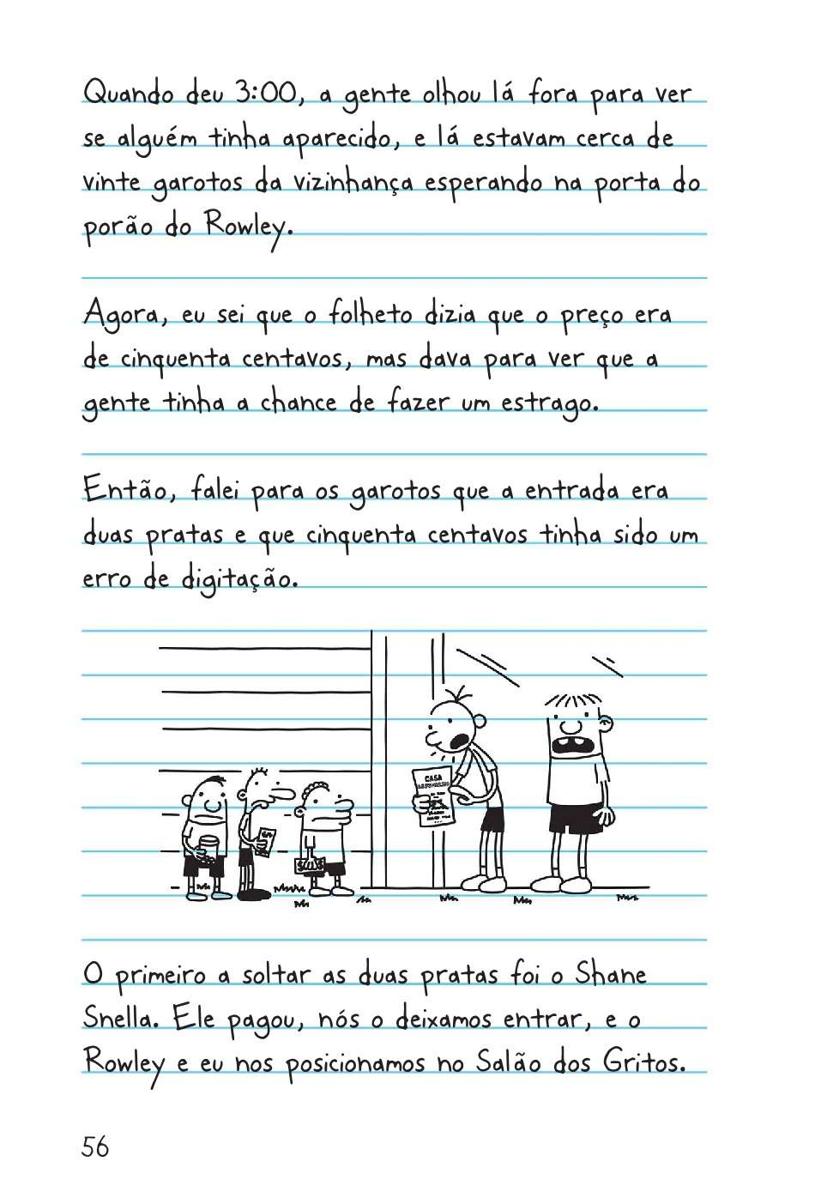 Quando deu 3:00, a gente olhou lá fora para ver
se alguém tinha aparecido, e lá estavam cerca de
vinte garotos da vizinhança esperando na porta do
porão do Rowley.
Agora, eu sei que o folheto dizia que o preço era
de cinquenta centavos, mas dava para ver que a
gente tinha a chance de fazer um estrago.
Então, falei para os garotos que a entrada era
duas pratas e que cinquenta centavos tinha sido um
erro de digitação.
CASA
O primeiro a soltar as duas pratas foi o Shane
Snella. Ele pagou, nós o deixamos entrar, e o
Rowley e eu nos posicionamos no Salão dos Gritos.
56